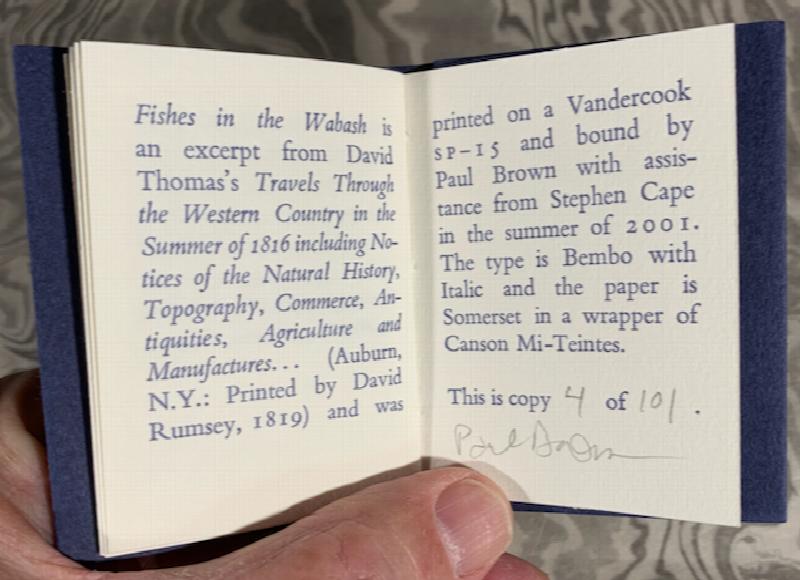 Fishes in the Wabash is
an excerpt from David
Thomas's Travels Through
the Western Country in the
Summer of 1816 including No-
tices of the Natural History,
Topography, Commerce, An-
tiquities, Agriculture and
Manufactures... (Auburn,
N.Y.: Printed by David
Rumsey, 1819) and was
printed on a Vandercook
SP-15 and bound by
Paul Brown with assis-
tance from Stephen Cape
in the summer of 2001.
The type is Bembo with
Italic and the paper is
Somerset in a wrapper of
Canson Mi-Teintes.
This is copy 4 of 101.
Paul Brown